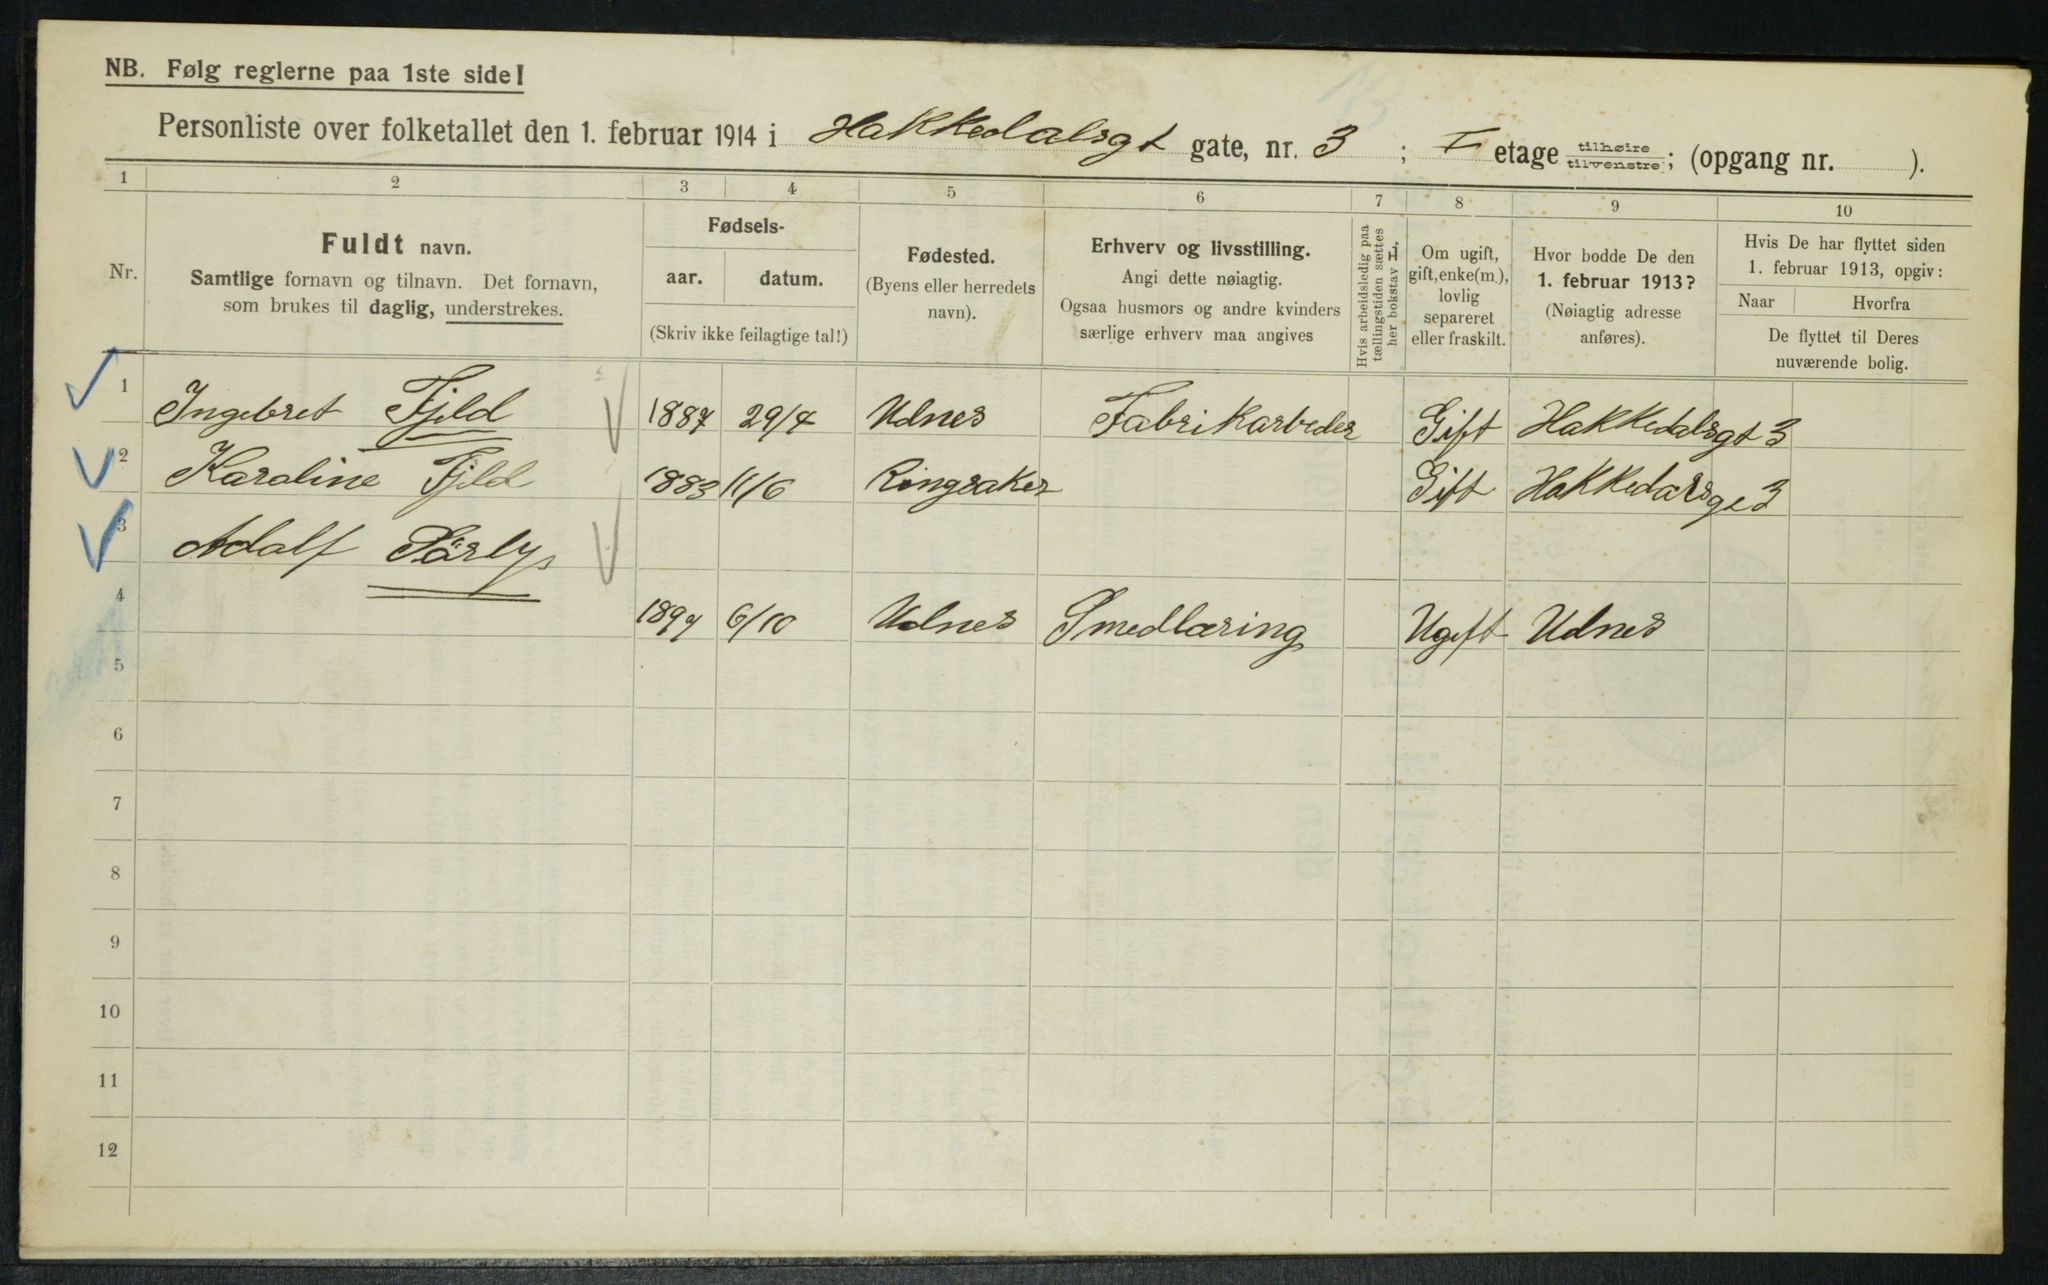 NB. Følg reglerne paa 1ste side!
Personliste over folketallet den 1. februar 1914 i Hakkedalsgt gate, nr. 3 ; I etage tilhøire tilvenstre; (opgang nr. ).
1 2 3 4 5 6 7 8 9 10
Nr.
Fuldt navn.
Samtlige fornavn og tilnavn. Det fornavn,
som brukes til daglig, understrekes.
Fødsels-
aar. datum.
(Skriv ikke feilagtige tal!)
Fødested.
(Byens eller herredets
navn).
Erhverv og livsstilling.
Angi dette nøiagtig.
Ogsaa husmors og andre kvinders
særlige erhverv maa angives
Hvis arbeidsledig paa
tællingstiden sættes
her bokstav L.
Om ugift,
gift, enke(m.),
lovlig
separeret
eller fraskilt.
Hvor bodde De den
1. februar 1913?
(Nøiagtig adresse
anføres).
Hvis De har flyttet siden
1. februar 1913, opgiv:
Naar Hvorfra
De flyttet til Deres
nuværende bolig.
1 Ingebret Fjeld 1887 29/4 Udnes Fabrikarbeder Gift Hakkedalsgt 3
2 Karoline Fjeld 1883 11/6 Ringsaker Gift Hakkedarsge 3
3 Adalf Pärlys
4 1897 6/10 Udnes Smedlæring Ugift Udnes
5
6
7
8
9
10
11
12